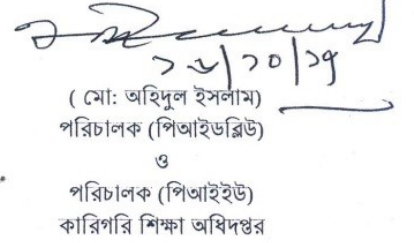 ১৬/১০/১৭
( মো: অহিদুল ইসলাম)
পরিচালক (পিআইডব্লিউ)
ও
পরিচালক (পিআইইউ)
কারিগরি শিক্ষা অধিদপ্তর